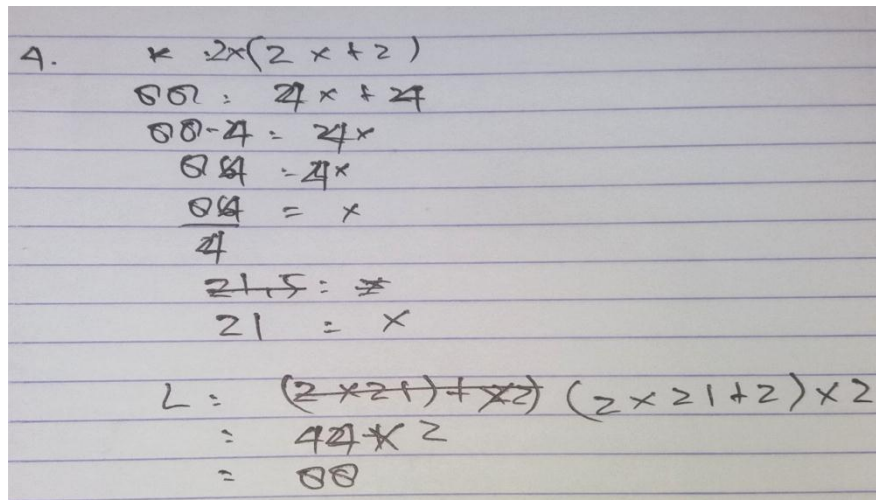 4. K . 2x(2x+2)
88 = 4x + 4
88-4 = 4x
84 = 4x
84 = x
4
21,5 = x
21 = x
L = (2×21)+×2) (2×21+2)×2
= 44×2
= 88